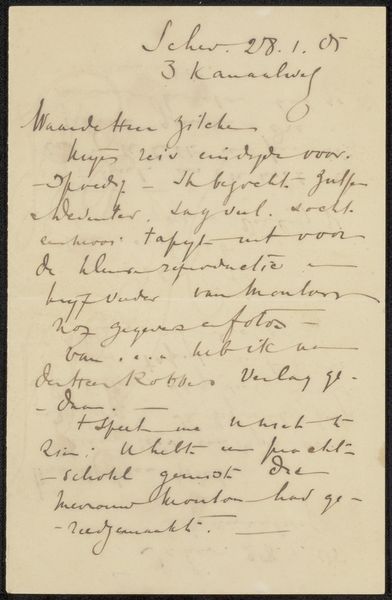 Schev. 28.1.05
3 Kanaalweg
Waarde Heer Zilcken
mijn reis eindigde voor-
-spoedig - Ik bezocht Zutfen
en Deventer. zag veel. zocht
een mooi tapijt uit voor
de kleuren reproductie en
kreeg verder van Mouton
nog gegevens en foto's -
van .... heb ik aan
den Heer Kobbe verslag ge-
-daan. -
't Speet me U niet te
zien: U hebt een pracht-
-schotel gemist die
Mevrouw Mouton had ge-
-reedgemaakt. -